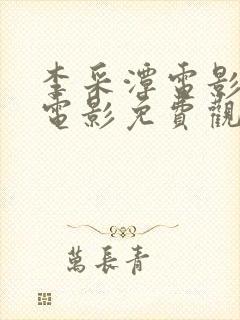 李采潭電影
電影免費觀
萬長青